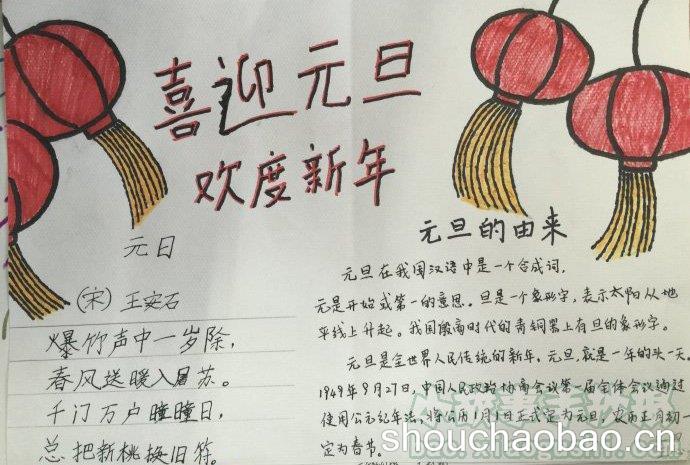 喜迎元旦
欢度新年
元日
(宋) 王安石
爆竹声中一岁除,
春风送暖入屠苏。
千门万户瞳瞳日,
总把新桃换旧符。
元旦的由来
元旦在我国汉语中是一个合成词,
元是开始或第一的意思。旦是一个象形字,表示太阳从地
平线上升起。我国殷商时代的青铜器上有旦的象形字。
元旦是全世界人民传统的新年。元旦,就是一年的头一天。
1949年9月27日,中国人民政治协商会议第一届全体会议通过
使用公元纪年法,将公历1月1日正式定为元旦,农历正月初一
定为春节。
shouchaobao.cn